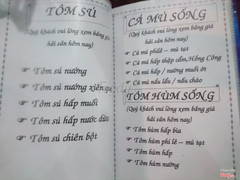 TÔM SÚ
(Quý khách vui lòng xem bảng giá
hải sản hôm nay)
Tôm sú nướng
Tôm sú nướng xiên
Tôm sú hấp muối
Tôm sú hấp nước dừa
Tôm sú chiên bột
CÁ MÚ SỐNG
(Quý khách vui lòng xem bảng giá
hải sản hôm nay)
Cá mú philê – mù tạt
Cá mú hấp thập cẩm, Hồng Công
Cá mú hấp / nướng muối ớt
Cá mú nấu lẩu / nấu cháo
TÔM HÙM SỐNG
(Quý khách vui lòng xem bảng giá
hải sản hôm nay)
Tôm hùm hấp bia
Tôm hùm phi lê – mù tạt
Tôm hùm hấp
Tôm hùm nướng